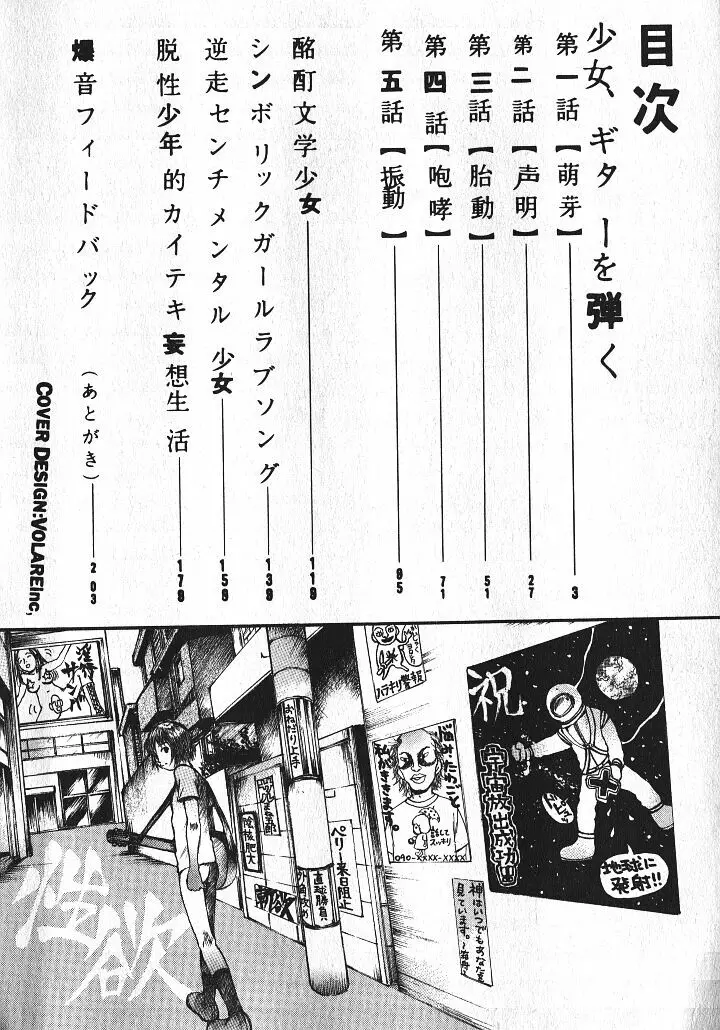 目次
少女、ギターを弾く
第一話【萌芽】 3
第二話【声明】 27
第三話【胎動】 51
第四話【咆哮】 71
第五話【振動】 95
酩酊文学少女 119
シンボリックガールラブソング 139
逆走センチメンタル少女 159
脱性少年的カイテキ妄想生活 179
爆音フィードバック（あとがき） 203
COVER DESIGN:VOLARE Inc,
祝
宇宙放出成功
地球に
発射!!
ハラキリ警報
悩みたらごと
私がききます。
話して
スッキリ
090-XXXX-XXXX
神はいつでもあなたを
見ています。
おねだり上手
ペリー来日阻止
直球勝負
外角攻め
陰核肥大
性欲